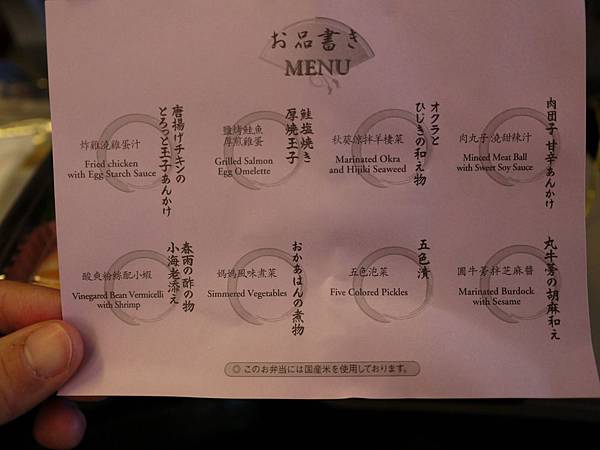 お品書き
MENU
唐揚げチキンの
とろっと玉子あんかけ
炸雞澆雞蛋汁
Fried chicken
with Egg Starch Sauce
鮭塩焼き
厚焼玉子
鹽烤鮭魚
厚煎雞蛋
Grilled Salmon
Egg Omelette
オクラと
ひじきの和え物
秋葵涼拌羊棲菜
Marinated Okra
and Hijiki Seaweed
肉団子 甘辛あんかけ
肉丸子 澆甜辣汁
Minced Meat Ball
with Sweet Soy Sauce
春雨の酢の物
小海老添え
酸爽粉絲配小蝦
Vinegared Bean Vermicelli
with Shrimp
おかあはんの煮物
媽媽風味煮菜
Simmered Vegetables
五色漬
五色泡菜
Five Colored Pickles
丸牛蒡の胡麻和え
圓牛蒡拌芝麻醬
Marinated Burdock
with Sesame
◎ このお弁当には国産米を使用しております。